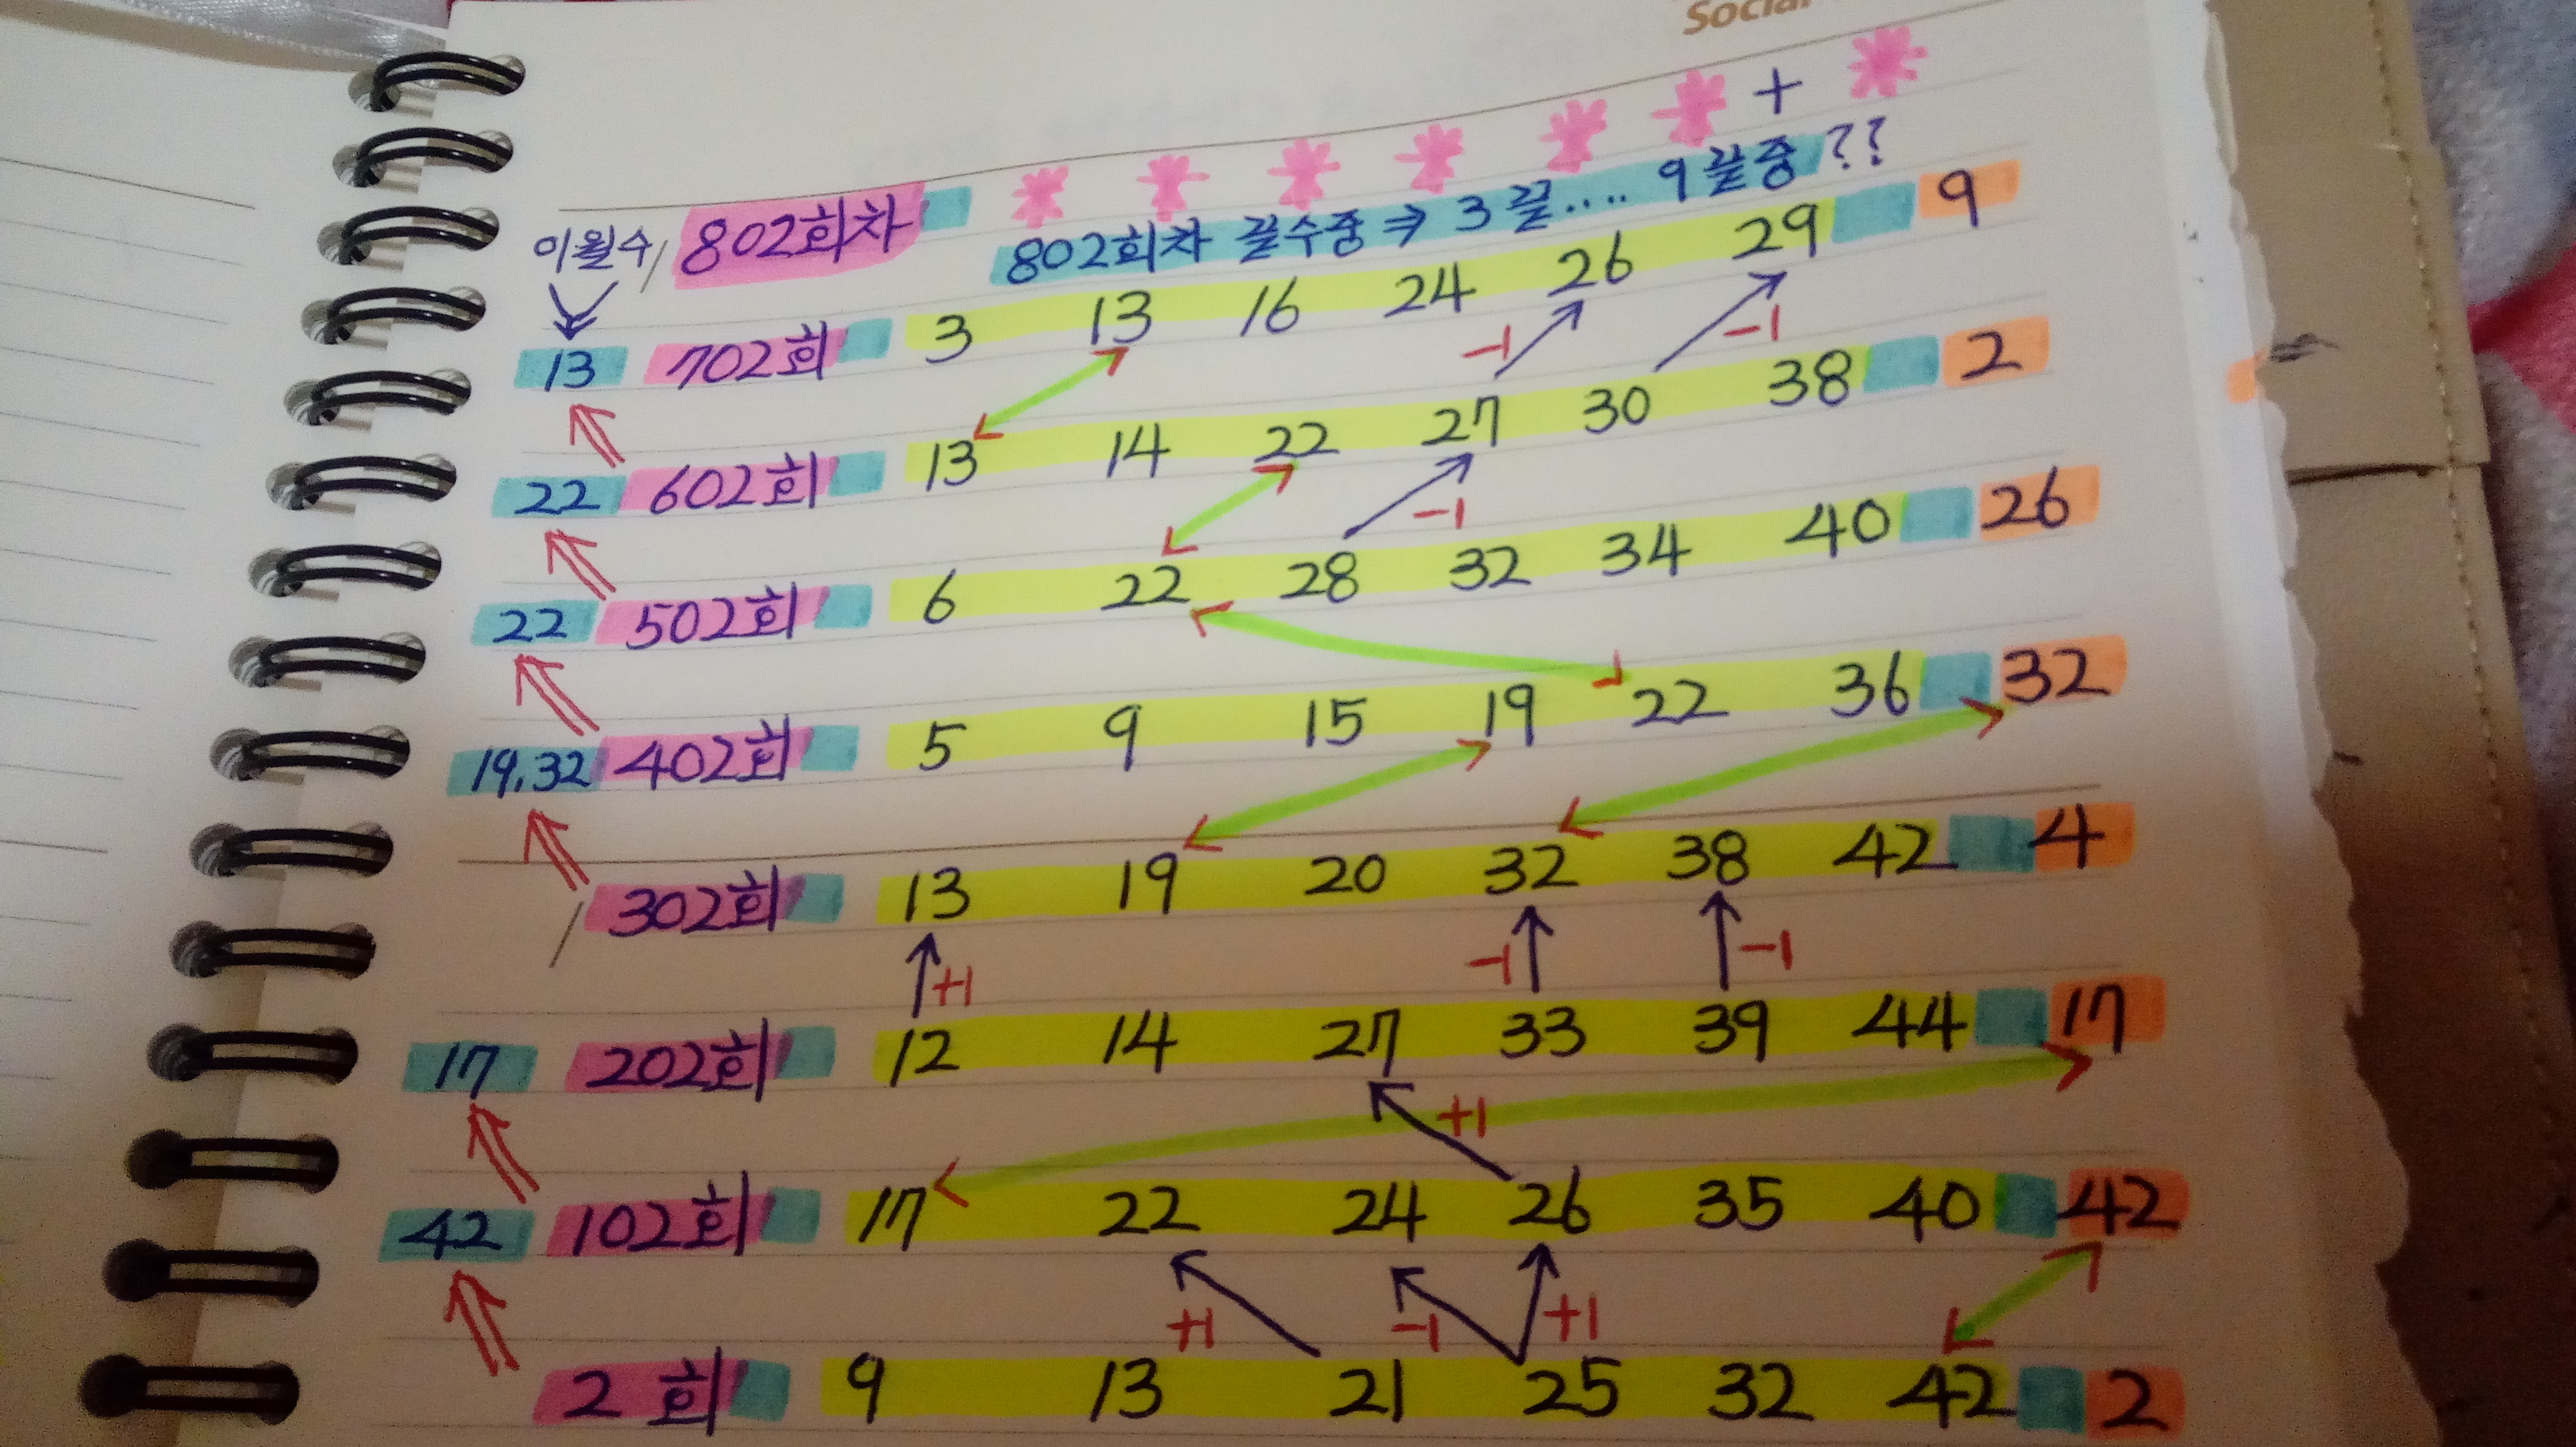 Social
+
802회차 끝수중 ⇒ 3끝.... 9끝중 ??
이월수 / 802회차
13 702회 3 13 16 24 26 29 9
-1 -1
22 602회 13 14 22 27 30 38 2
-1
22 502회 6 22 28 32 34 40 26
19.32 402회 5 9 15 19 22 36 32
/ 302회 13 19 20 32 38 42 4
+1 -1 -1
17 202회 12 14 27 33 39 44 17
+1
42 102회 17 22 24 26 35 40 42
+1 -1 +1
2회 9 13 21 25 32 42 2